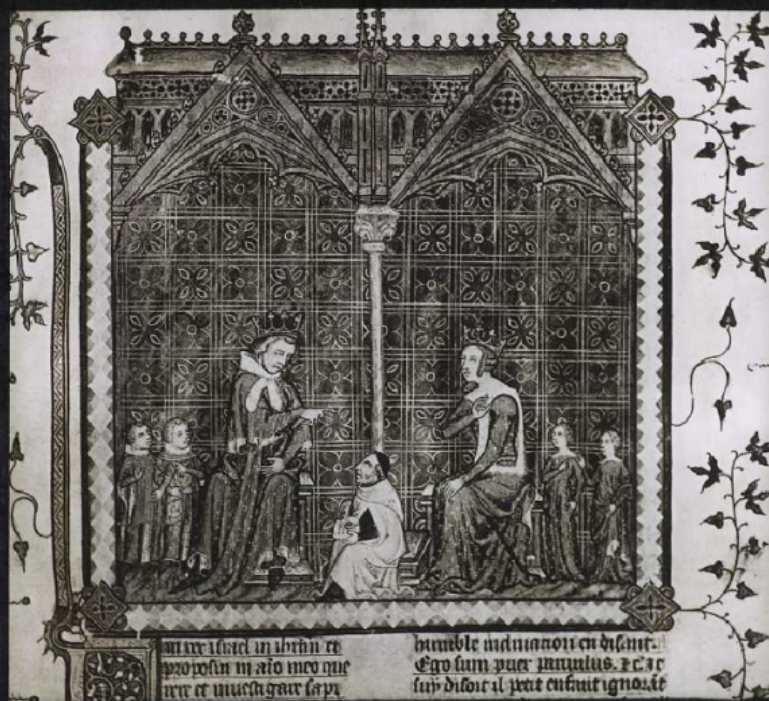 rex israel in ihrlm et
proposui in aīo meo que
rere et investigare sapi
humble inclinacion en disant.
Ego sum puer parvulus. ⁊c̄ ie
suy disoit il petit enfant ignorāt